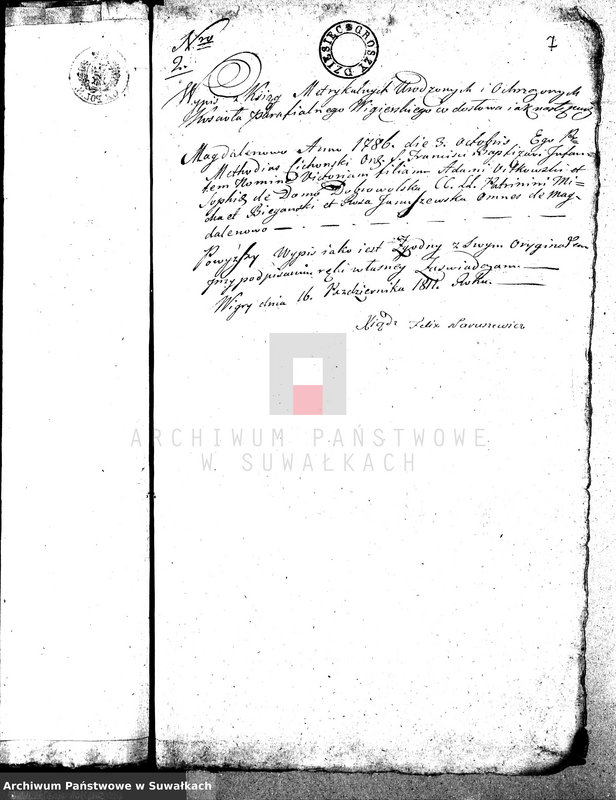 Nro
2.
DZIESIĘC GROSZY
1
Wypis z Xiąg Metrykalnych Urodzonych i Ochrzconych
Kościoła Parafialnego Wigierskiego co dosłowa iak następuie
Magdalenowo Anno 1786. die 3. Octobris Ego
Methodius Cichonski Ord: S. Francisci Baptizavi Infan-
tem Nomine Victoriam filiam Adami Witkowski et
Sophiæ de Domo Dobrowolska C. LL. Patrinini Mi-
chael Bieganski et Rosa Januszewska Omnes de Mag-
dalenowo
Powyższy Wypis iako iest Zgodny z Swym Oryginałem
przy podpisaniu ręki własney Zaświadczam.
Wigry dnia 16. Października 1811. Roku.
Xiądz Felix
ARCHIWUM PAŃSTWOWE
W SUWAŁKACH
Archiwum Państwowe w Suwałkach